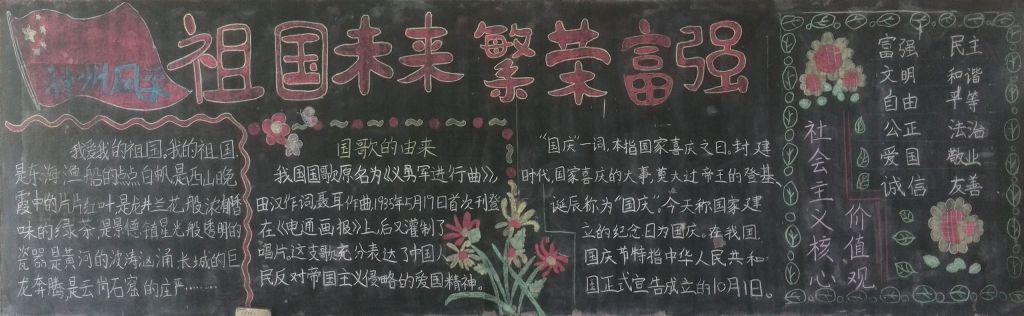 神州风采
祖国未来 繁荣富强
我爱我的祖国。我的祖国
是东海渔船的点点白帆是西山晚
霞中的片片红叶是龙井兰花般浓郁
味的绿茶是景德镇星光般透明的
瓷器是黄河的波涛汹涌长城的巨
龙奔腾是云岗石窟的庄严……
国歌的由来
我国国歌原名为《义勇军进行曲》,
田汉作词,聂耳作曲1935年5月17日首次刊登
在《电通画报》上,后又灌制了
唱片,这支歌充分表达了中国人
民反对帝国主义侵略的爱国精神。
“国庆”一词,本指国家喜庆之日,封建
时代,国家喜庆的大事,莫大过帝王的登基、
诞辰称为“国庆”,今天称国家建
立的纪念日为国庆。在我国,
国庆节特指中华人民共和
国正式宣告成立的10月1日。
社会主义核心
价值观
富强 民主
文明 和谐
自由 平等
公正 法治
爱国 敬业
诚信 友善